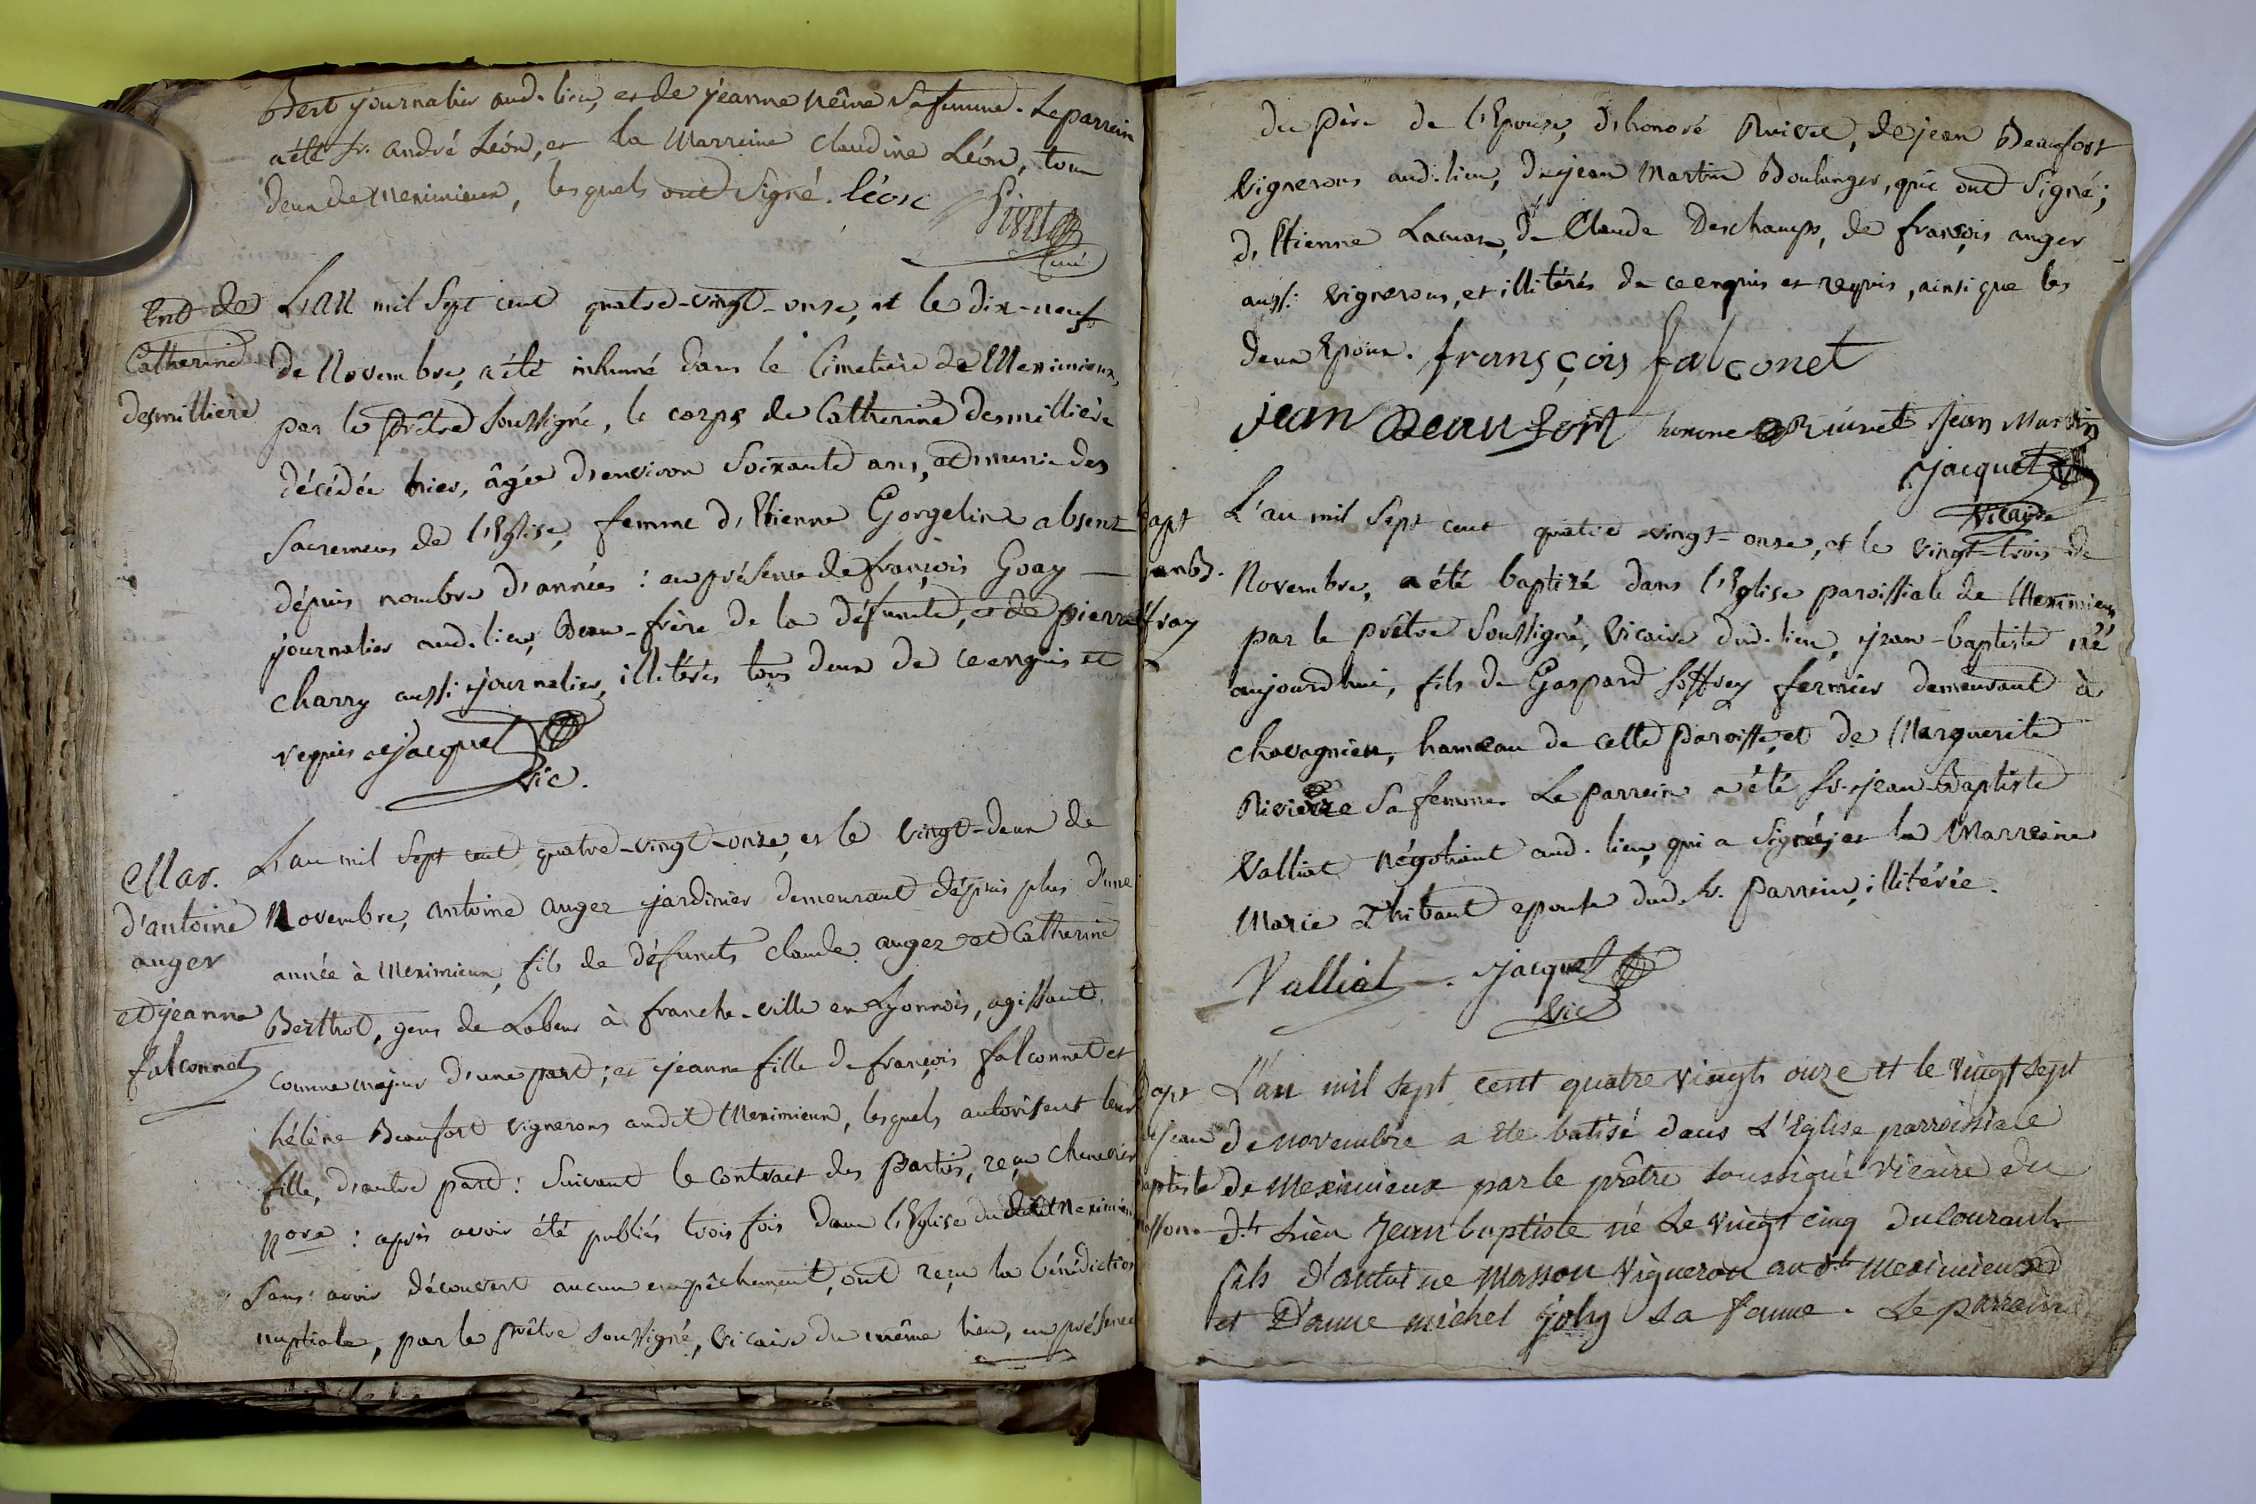 Bert journalier aud. lieu, et de jeanne Neîme sa femme. Le parrein
a été sr. andré Léon, et la Marreine Claudine Léon, tous
deux de Meximieux, lesquels ont signé. léon
curé
Ent. de
Catherine
desmilliere
L'an mil sept cent quatre-vingt-onze, et le dix-neuf
de Novembre, a été inhumé dans le Cimetière de Meximieux,
par le Prêtre soussigné, le corps de Catherine desmillière
décédée hier, âgée d'environ soixante ans, et munie des
sacremens de l'Eglise, femme d'Etienne Gorgeline absent
dépuis nombre d'années : en présence de françois Goay —
journalier aud. lieu, Beau-frère de la défunte, et de pierre
charry aussi journalier, illitérés tous deux de ce enquis et
requis Jacquet
vic.
Mar.
d'antoine
anger
et jeanne
falconnet
L'an mil sept cent quatre-vingt-onze, et le vingt-deux de
Novembre, antoine anger jardinier demeurant dépuis plus d'une
année à Meximieux, fils de défunts claude anger et Catherine
Berthot, gens de Labeur à franche-ville en Lyonnois, agissant
comme majeur d'une part ; et jeanne fille de françois falconnet et
hélène Beaufort vignerons audit Meximieux, lesquels autorisent leur
fille, d'autre part : suivant le contract des Parties, reçu
nore : après avoir été publiés trois fois dans l'Eglise dudit Meximieux
sans avoir découvert aucun empêchement, ont reçu la bénédiction
nuptiale, par le prêtre soussigné, vicaire du même lieu, en présence
du père de l'Epouse, d'honoré Rivet, de jean Beaufort
vignerons aud. lieu, de jean Martin Boulanger, qui ont signé ;
d'Etienne de Claude Deschamps, de françois anger
aussi vignerons, et illitérés de ce enquis et requis, ainsi que les
deux Epoux. franşçois falconet
jean Beaufort honore Riuvet Jean Martin
Jacquet
vicaire
Bapt
jean B.
ffray
L'an mil sept cent quatre vingt-onze, et le vingt-trois de
Novembre, a été baptizé dans l'Eglise paroissiale de Meximieux
par le prêtre soussigné, vicaire dud. lieu, jean-baptiste né
aujourdhui, fils de Gaspard Soffrey fermier demeurant à
chavagnieu, hameau de cette Paroisse, et de Marguerite
Rivière sa femme. Le parrein a été sr. jean-Baptiste
Valliat négotiant aud. lieu, qui a signé, et la Marreine
Marie Thibaut epouse dud. sr. Parrein, illitérée.
Valliat Jacquet
vic
Bapt
de jean
baptiste
masson
L'an mil sept cent quatre vingts onze et le vingt sept
de novembre a ete batisé dans L'Eglise parroissiale
de Meximieux par le prêtre soussigné vicaire du
dt Lieu Jean baptiste né Le vingt cinq du courant
fils d'antoine Masson vigneron audt Meximieux
et D'anne michel joly sa femme. Le parrain